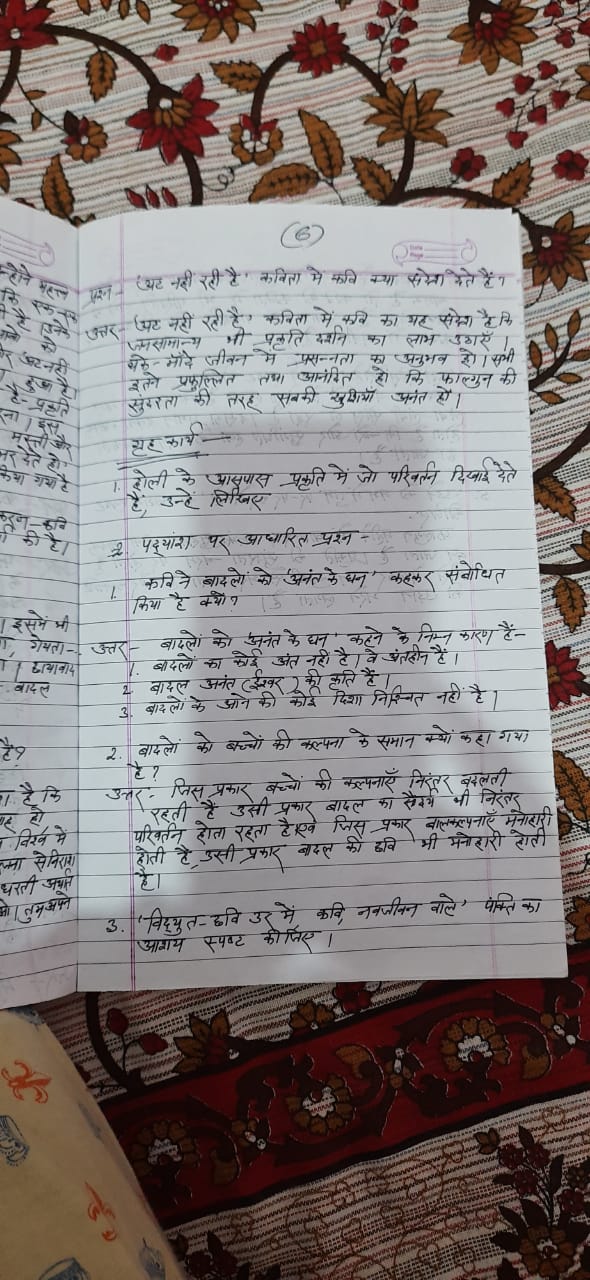 (6)
Date
Page
प्रश्न - 'अट नहीं रही है' कविता में कवि क्या संदेश देते हैं?
उत्तर - 'अट नहीं रही है' कविता में कवि का यह संदेश है कि
जनसामान्य भी प्रकृति दर्शन का लाभ उठाएँ।
थके-माँदे जीवन में प्रसन्नता का अनुभव हो। सभी
इतने प्रफुल्लित तथा आनंदित हो कि फाल्गुन की
सुंदरता की तरह सबकी खुशियाँ अनंत हों।
गृह कार्य -
1. होली के आसपास प्रकृति में जो परिवर्तन दिखाई देते
हैं, उन्हें लिखिए
2. पद्यांश पर आधारित प्रश्न -
1. कवि ने बादलों को 'अनंत के घन' कहकर संबोधित
किया है क्यों?
उत्तर - बादलों को 'अनंत के घन' कहने के निम्न कारण हैं-
1. बादलों का कोई अंत नहीं है। वे अंतहीन हैं।
2. बादल अनंत (ईश्वर) की कृति हैं।
3. बादलों के आने की कोई दिशा निश्चित नहीं है।
2. बादलों को बच्चों की कल्पना के समान क्यों कहा गया
है?
उत्तर - जिस प्रकार बच्चों की कल्पनाएँ निरंतर बदलती
रहती हैं उसी प्रकार बादल का सौंदर्य भी निरंतर
परिवर्तन होता रहता है। एवं जिस प्रकार बालकल्पनाएँ मनोहारी
होती हैं, उसी प्रकार बादल की छवि भी मनोहारी होती
है।
3. 'विद्युत-छवि उर में कवि, नवजीवन वाले' पंक्ति का
आशय स्पष्ट कीजिए।